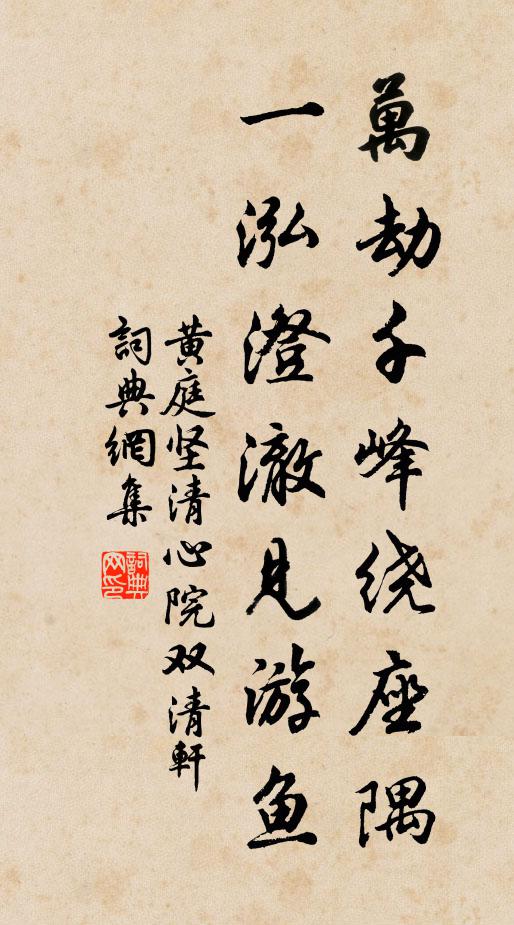 萬劫千峰绕座隅
一泓澄澈見游鱼
黄庭坚清心院双清軒
詞典網集
詞典网印